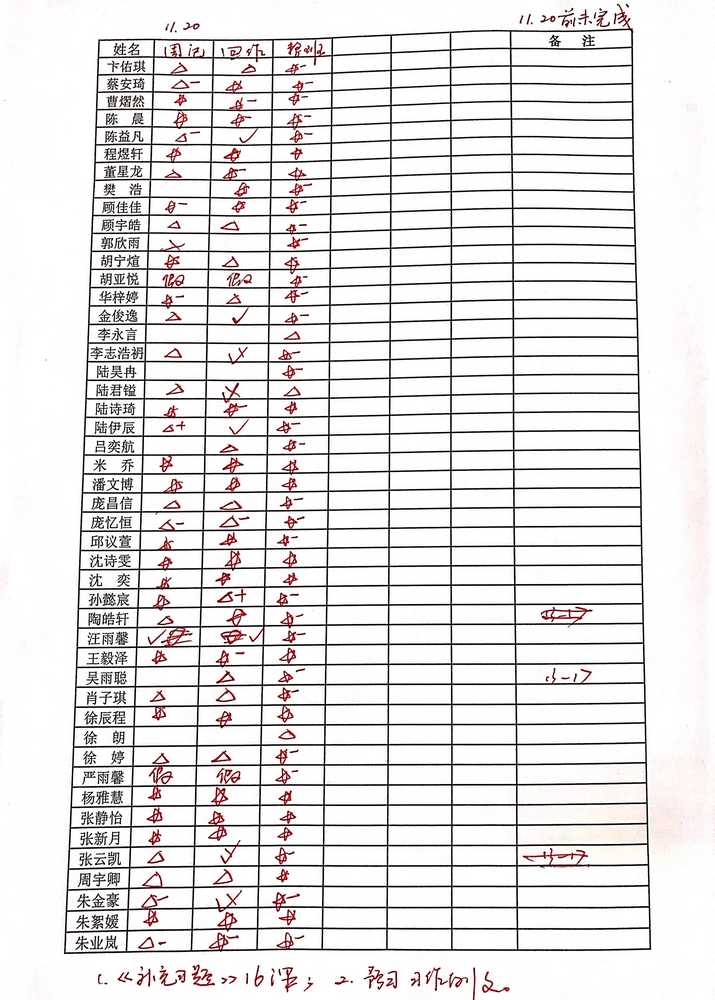 11.20
11.20前未完成
姓名 周记 回作 预习 备注
卞佑琪 △ △ ☆-
蔡安琦 △- ☆ ☆-
曹熠然 ☆ ☆- ☆-
陈晨 ☆ ☆- ☆-
陈益凡 △- ✓ ☆-
程煜轩 ☆ ☆ ☆
董星龙 △ ☆- ☆
樊浩 ☆ ☆-
顾佳佳 ☆- ☆ ☆-
顾宇皓 △ △ ☆-
郭欣雨 ☆-
胡宁煊 ☆ △ ☆
胡亚悦 假 假 ☆-
华梓婷 ☆- △ ☆-
金俊逸 △ ✓ ☆-
李永言 △
李志浩礽 △ ☆-
陆昊冉 ☆-
陆君镒 △ ✗ △
陆诗琦 ☆ ☆- ☆
陆伊辰 △+ ✓ ☆-
吕奕航 △ ☆-
米乔 ☆ ☆ ☆
潘文博 ☆ ☆ ☆
庞昌信 △ △ ☆-
庞忆恒 △- △- ☆-
邱议萱 ☆ ☆ ☆
沈诗雯 ☆ ☆ ☆
沈奕 ☆ ☆ ☆
孙懿宸 ☆ △+ ☆-
陶皓轩 △ ☆ ☆-
汪雨馨 ✓ ✓ ☆-
王毅泽 ☆ ☆- ☆
吴雨聪 △ ☆- 13-17
肖子琪 △ △ ☆-
徐辰程 ☆ ☆ ☆
徐朗 △
徐婷 △ △ ☆-
严雨馨 假 假 ☆-
杨雅慧 ☆ ☆ ☆
张静怡 ☆ ☆ ☆
张新月 ☆ ☆ ☆
张云凯 △ ☆- 13-17
周宇卿 △ △ ☆
朱金豪 △- ☆-
朱絮媛 ☆ ☆ ☆
朱业岚 △- ☆- ☆-
1.《补充习题》16课; 2. 预习 习作例文。